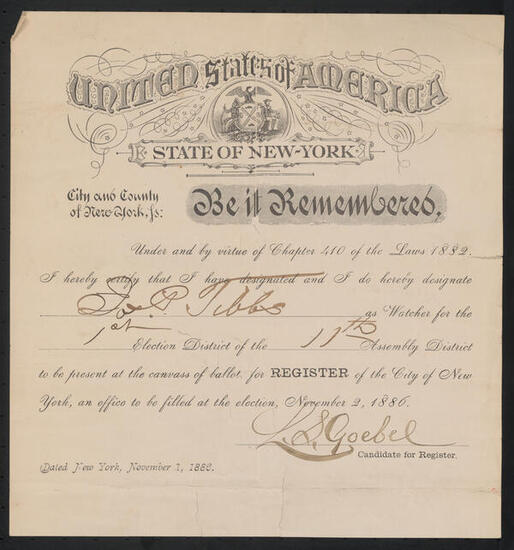 UNITED States of AMERICA
STATE OF NEW-YORK
City and County
of New York, ss:
Be it Remembered,
Under and by virtue of Chapter 410 of the Laws 1882.
I hereby certify that I have designated and I do hereby designate
Jos P. Tibbs as Watcher for the
1st Election District of the 11th Assembly District
to be present at the canvass of ballot, for REGISTER of the City of New
York, an office to be filled at the election, November 2, 1886.
L. S. Goebel
Candidate for Register.
Dated New York, November 1, 1886.